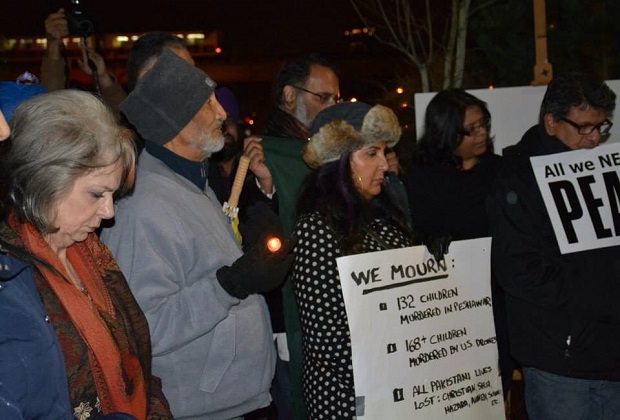 WE MOURN:
132 CHILDREN
MURDERED IN PESHAWAR
168+ CHILDREN
MURDERED BY U.S. DRONES
ALL PAKISTANI LIVES
LOST: CHRISTIAN, SHIA,
HAZARA, AHMEDI, SUNNI
ETC
All we NE
PEA